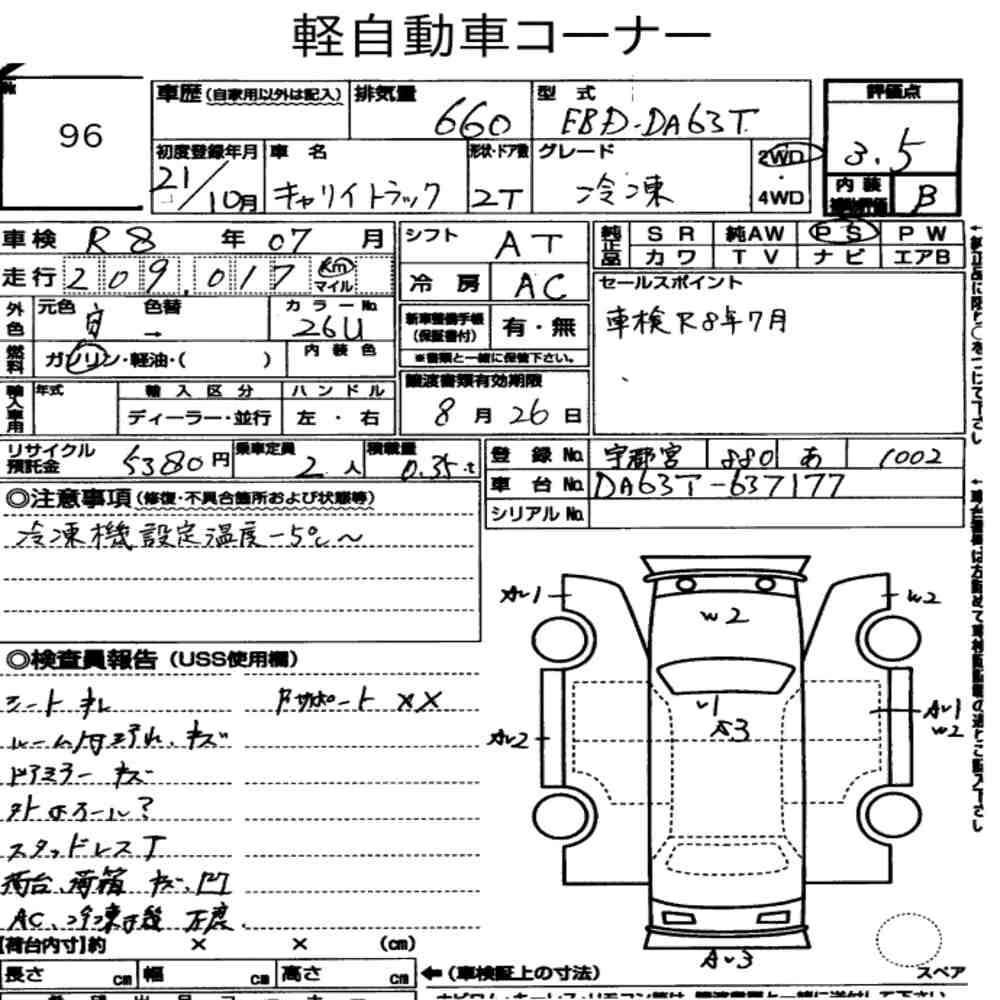 軽自動車コーナー
96
車歴 (自家用以外は記入) 排気量 660 型式 EBD-DA63T 評価点 3.5
初度登録年月 21/10月 車名 キャリイトラック 形状・ドア数 2T グレード 冷凍 2WD・4WD 内装補助評価 B
車検 R8年07月 シフト AT 純正品 SR 純AW PS PW
カワ TV ナビ エアB
走行 209,017 km マイル 冷房 AC
セールスポイント
車検R8年7月
外色 元色 白 色替 → カラーNo. 26U
新車整備手帳(保証書付) 有・無
※書類と一緒に保管下さい。
燃料 ガソリン・軽油・( ) 内装色
輸入車用 年式 輸入区分 ハンドル
ディーラー・並行 左・右
譲渡書類有効期限
8月26日
リサイクル預託金 5380円 乗車定員 2人 積載量 0.35t
登録No. 宇都宮 880 あ 1002
車台No. DA63T-637177
シリアルNo.
◎注意事項(修復・不具合箇所および状態等)
冷凍機設定温度-5℃~
◎検査員報告(USS使用欄)
シートキレ
ルーム内汚れ、キズ
ドアミラー キズ
スタッドレスT
荷台、荷箱 キズ、凹
XX
W2
W2
A3
W2
スペア
【荷台内寸】約 × × (cm)
長さ cm 幅 cm 高さ cm
←(車検証上の寸法)